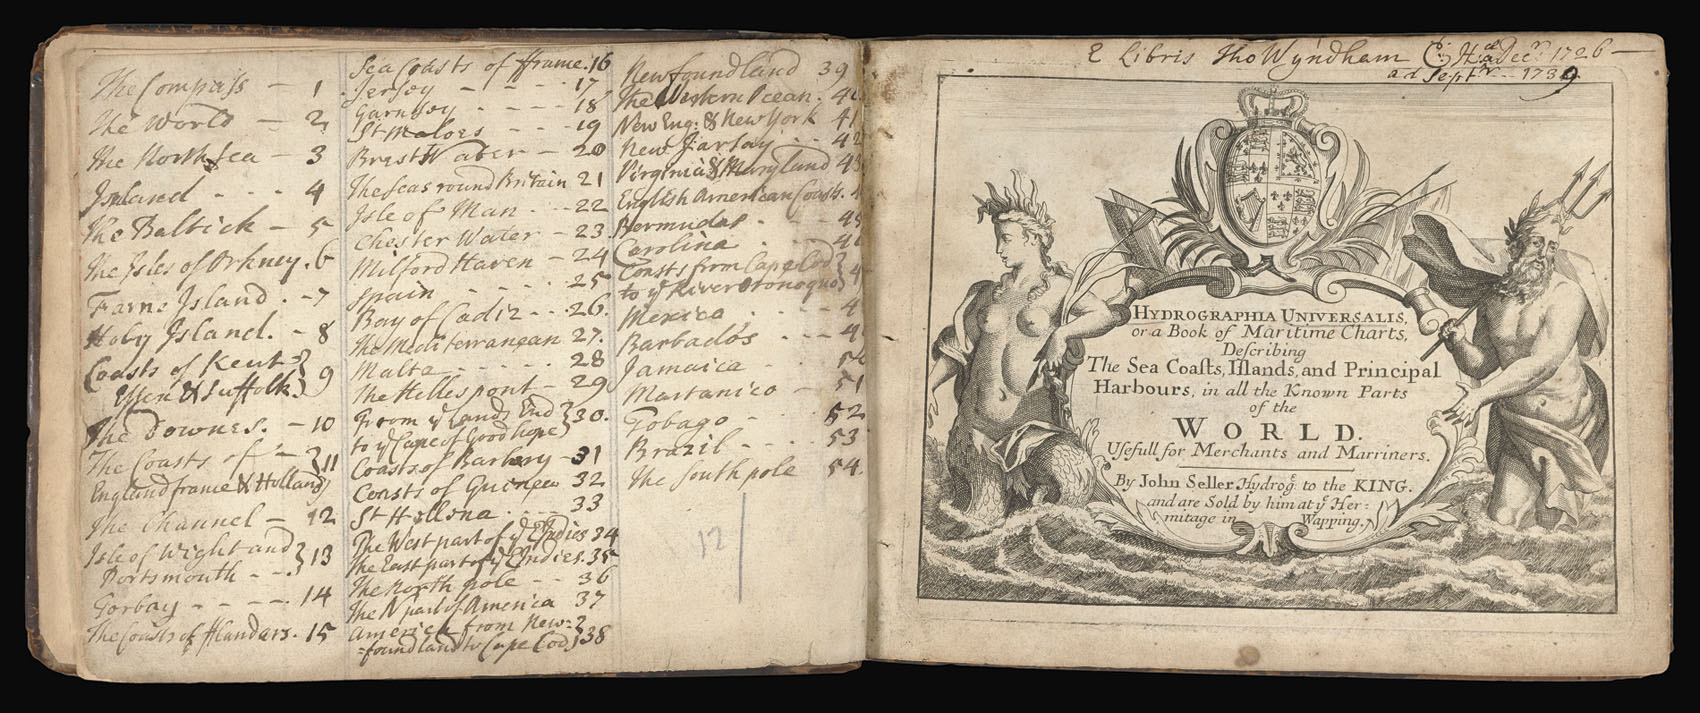 The Compass — 1
The World — 2
The North Sea — 3
Island - - - 4
The Baltick — 5
The Isles of Orkney. 6
Farne Island. - 7
Holy Island. - 8
Coasts of Kent
Essex & Suffolk } 9
The Downes. — 10
The Coasts of
England france & Holland } 11
The Channel — 12
Isle of Wight and
Portsmouth - - } 13
Torbay - - - - 14
The Coasts of fflanders. 15
Sea Coasts of ffrance. 16
Jersey - - - 17
Garnsey - - - - 18
St Maloes - - - 19
Brest Water - - 20
The Seas round Britain 21
Isle of Man - - 22
Chester Water - 23
Milford Haven - 24
Spain - - - - 25
Bay of Cadiz - - 26.
The Mediterranean 27.
Malta - - - - - 28
The Hellespont - 29
From ye Lands End
to ye Cape of Good hope } 30.
Coasts of Barbery - 31
Coasts of Guinea 32
St Hellena - - - 33
The West part of ye Indies 34
The East part of ye Indies. 35
The North pole - - 36
The N part of America 37
America from New=
=foundland to Cape Cod } 38
Newfoundland 39
The Western Ocean. 40
New Eng: & New York 41
New Jarsay - - 42
Virginia & Maryland 43
English American Coasts. 4
Bermudas - - 45
Carolina - - 46
Coasts from Cape Cod
to ye River } 4
Mexico - - - - 4
Barbados - - - 4
Jamaica - 5
Martanico - 51
Tobago - - - 52
Brazil - - - - 53
The South pole 54.
12
E Libris Tho Wyndham
Decr. 1726 —
ad Septr - 1739
HYDROGRAPHIA UNIVERSALIS,
or a Book of Maritime Charts,
Describing
The Sea Coasts, Islands, and Principal
Harbours, in all the Known Parts
of the
WORLD.
Usefull for Merchants and Marriners.
By John Seller Hydrogr. to the KING.
and are Sold by him at ye Her=
mitage in Wapping.